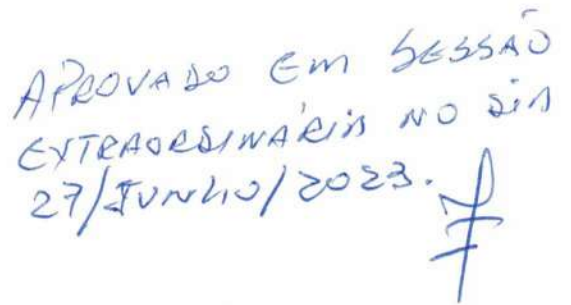 APROVADO EM SESSÃO
EXTRAORDINÁRIA NO DIA
27/JUNHO/2023.